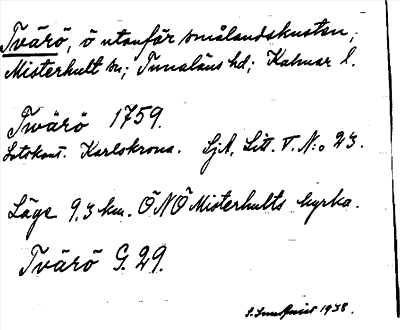 Tvärö, ö utanför smålandskusten,
Misterhult sn; Tunaläns hd; Kalmar l.
Twärö 1759.
Lotskont. Karlskrona. SjA, Litt. T. N:o 23.
Läge 9.3 km. ÖNÖ Misterhults kyrka.
Tvärö G. 29.
1938.